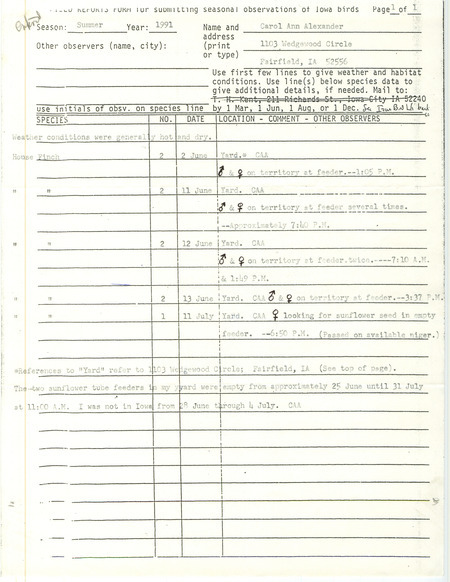 FIELD REPORTS FORM for submitting seasonal observations of Iowa birds Page 1 of 1
Season: Summer Year: 1991 Name and Carol Ann Alexander
address
Other observers (name, city): (print 1103 Wedgewood Circle
or type)
Fairfield, IA 52556
Use first few lines to give weather and habitat
conditions. Use line(s) below species data to
give additional details, if needed. Mail to:
T. H. Kent, 211 Richards St., Iowa City IA 52240
use initials of obsv. on species line by 1 Mar, 1 Jun, 1 Aug, or 1 Dec.
SPECIES NO. DATE LOCATION - COMMENT - OTHER OBSERVERS
Weather conditions were generally hot and dry.
House Finch 2 2 June Yard.* CAA
♂ & ♀ on territory at feeder.--1:05 P.M.
" " 2 11 June Yard. CAA
♂ & ♀ on territory at feeder several times.
--Approximately 7:40 P.M.
" " 2 12 June Yard. CAA
♂ & ♀ on territory at feeder.twice.----7:10 A.M.
& 1:49 P.M.
" " 2 13 June Yard. CAA ♂ & ♀ on territory at feeder.--3:37 P.M.
" " 1 11 July Yard. CAA ♀ looking for sunflower seed in empty
feeder. --6:50 P.M. (Passed on available niger.)
*References to "Yard" refer to 1103 Wedgewood Circle; Fairfield, IA (See top of page).
The two sunflower tube feeders in my yard were empty from approximately 25 June until 31 July
at 11:00 A.M. I was not in Iowa from 28 June through 4 July. CAA